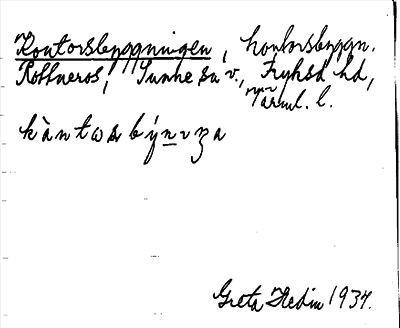 Kontorsbyggningen, kontorsbyggn.
Rottneros, Sunne sn v., Fryksd hd,
Värml. l.
kàntωsbýnnza
Greta Hedin 1934.